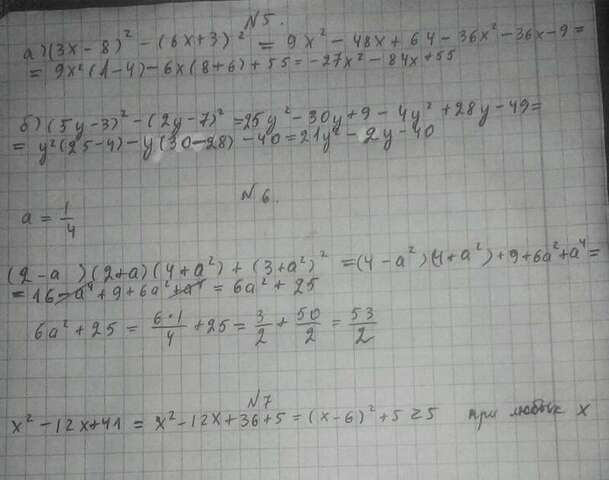 N5.
а) (3x - 8)² - (6x+3)² = 9x² - 48x + 64 - 36x² - 36x - 9 =
= 9x² (1 - 4) - 6x (8+6) + 55 = -27x² - 84x + 55
б) (5y - 3)² - (2y - 7)² = 25y² - 30y + 9 - 4y² + 28y - 49 =
= y² (25 - 4) - y (30 - 28) - 40 = 21y² - 2y - 40
N6.
a = 1/4
(2 - a )(2+a)(4+a²) + (3+a²)² = (4 - a²)(4+a²) + 9 + 6a² + a⁴ =
= 16 - a⁴ + 9 + 6a² + a⁴ = 6a² + 25
6a² + 25 = 6·1/4 + 25 = 3/2 + 50/2 = 53/2
N7
x² - 12x + 41 = x² - 12x + 36 + 5 = (x - 6)² + 5 ≥ 5 при любых x